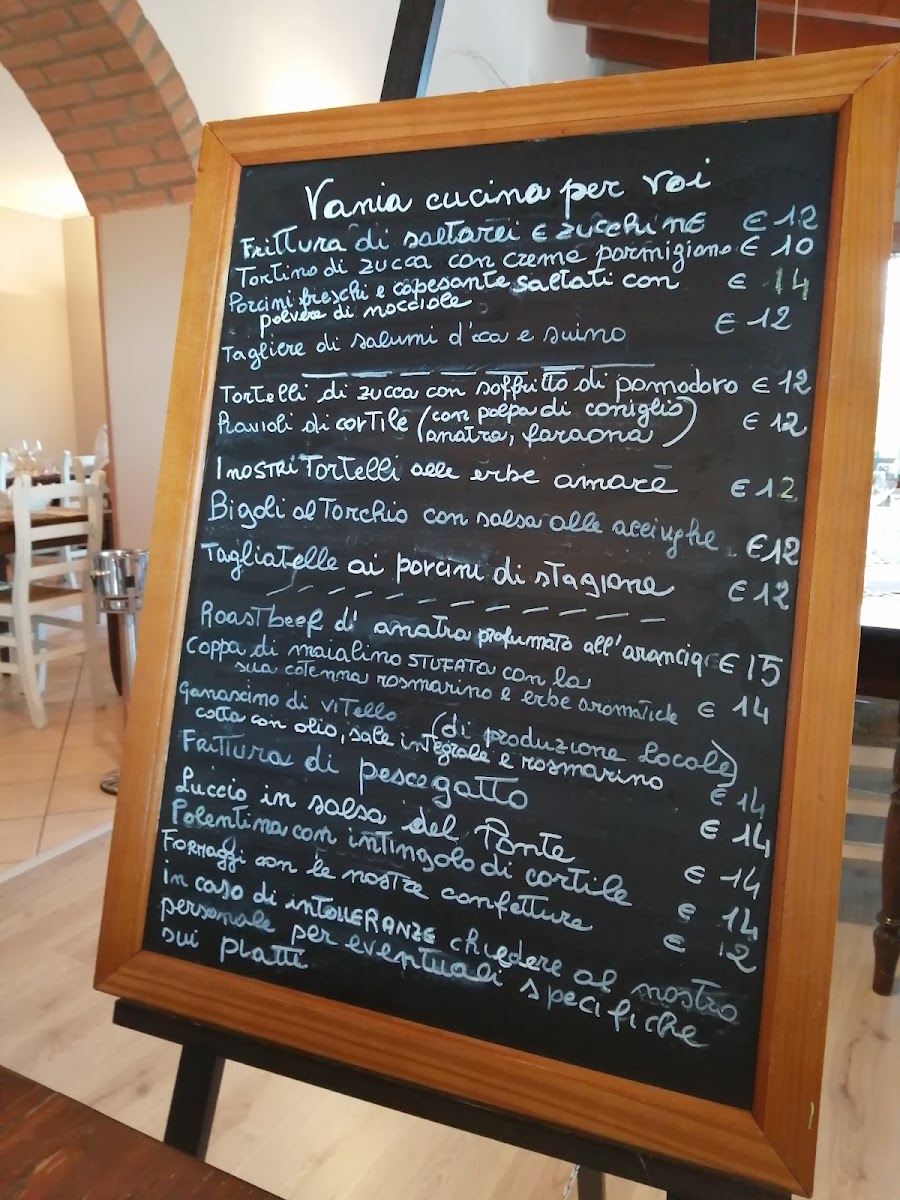 Vania cucina per voi
Frittura di saltarei e zucchine € 12
Tortino di zucca con crema parmigiano € 10
Porcini freschi e capesante saltati con € 14
polvere di nocciole
Tagliere di salumi d'oca e suino € 12
Tortelli di zucca con soffritto di pomodoro € 12
Ravioli di cortile (con polpa di coniglio € 12
anatra, faraona)
I nostri Tortelli alle erbe amare € 12
Bigoli al Torchio con salsa alle acciughe € 12
Tagliatelle ai porcini di stagione € 12
Roastbeef d'anatra profumato all'arancia € 15
Coppa di maialino STUFATA con la
sua cotenna rosmarino e erbe aromatiche € 14
Ganascino di vitello (di produzione locale)
cotta con olio, sale integrale e rosmarino € 14
Frittura di pescegatto € 14
Luccio in salsa del Ponte € 14
Polentina con intingolo di cortile € 14
Formaggi con le nostre confetture € 12
in caso di intolleranze chiedere al nostro
personale per eventuali specifiche
sui piatti